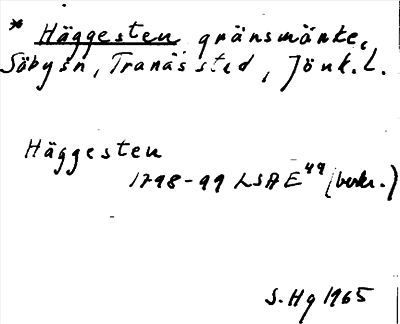 * Häggesten gränsmärke,
Säby sn, Tranås stad, Jönk. L.
Häggesten
1798-99 LSA E49 (beskr.)
S. Hg 1965